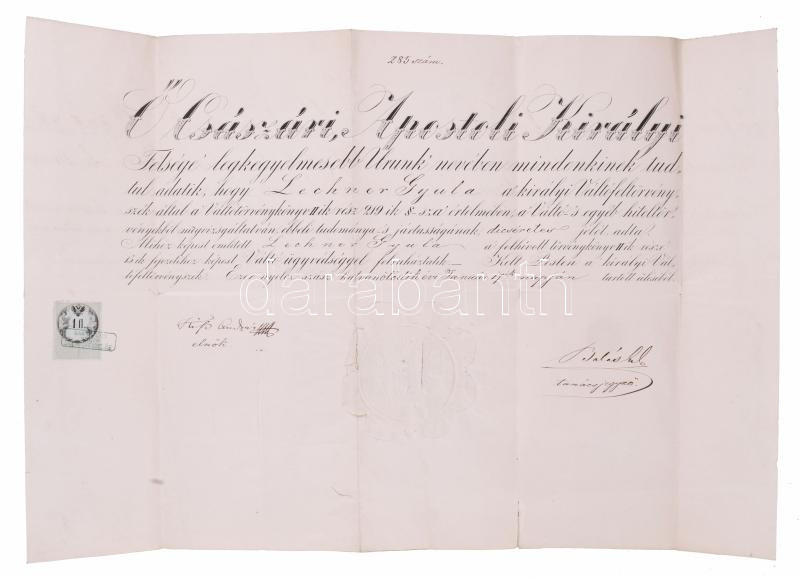 285 szám.
Ő Császári, Apostoli Királyi
Felsége legkegyelmesebb Urunk nevében mindenkinek tud-
tul adatik, hogy Lechner Gyula a' királyi Váltófeltörvény-
szék által a' Váltótörvénykönyv II ik rész 219 ik §-sza értelmében, a' Váltó- 's egyéb hiteltör-
vényekből megvizsgáltatván, ebbeli tudománya- 's jártasságának, dicséretes jelét adta.
Mihez képest említett Lechner Gyula a' felhívott törvénykönyv II ik része
ik §-sához képest Váltó ügyvédséggel felruháztatik. — Kelt Pesten a' királyi Vál-
tófeltörvényszék Ezer nyolcz száz évi Január 17 k napján tartott ülésében.
elnök
1 fl.
Balás
tanácsjegyző
darabanth